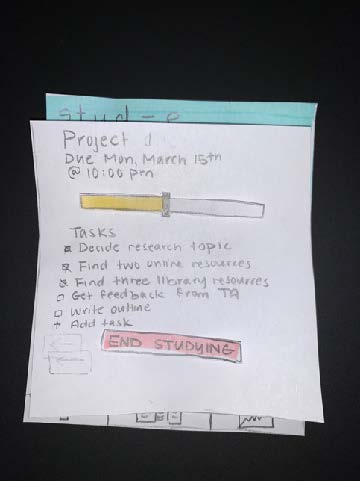 stud-e
Project 1
Due Mon, March 15th
@ 10:00 pm
Tasks
Decide research topic
Find two online resources
Find three library resources
Get feedback from TA
Write outline
+ Add task
END STUDYING